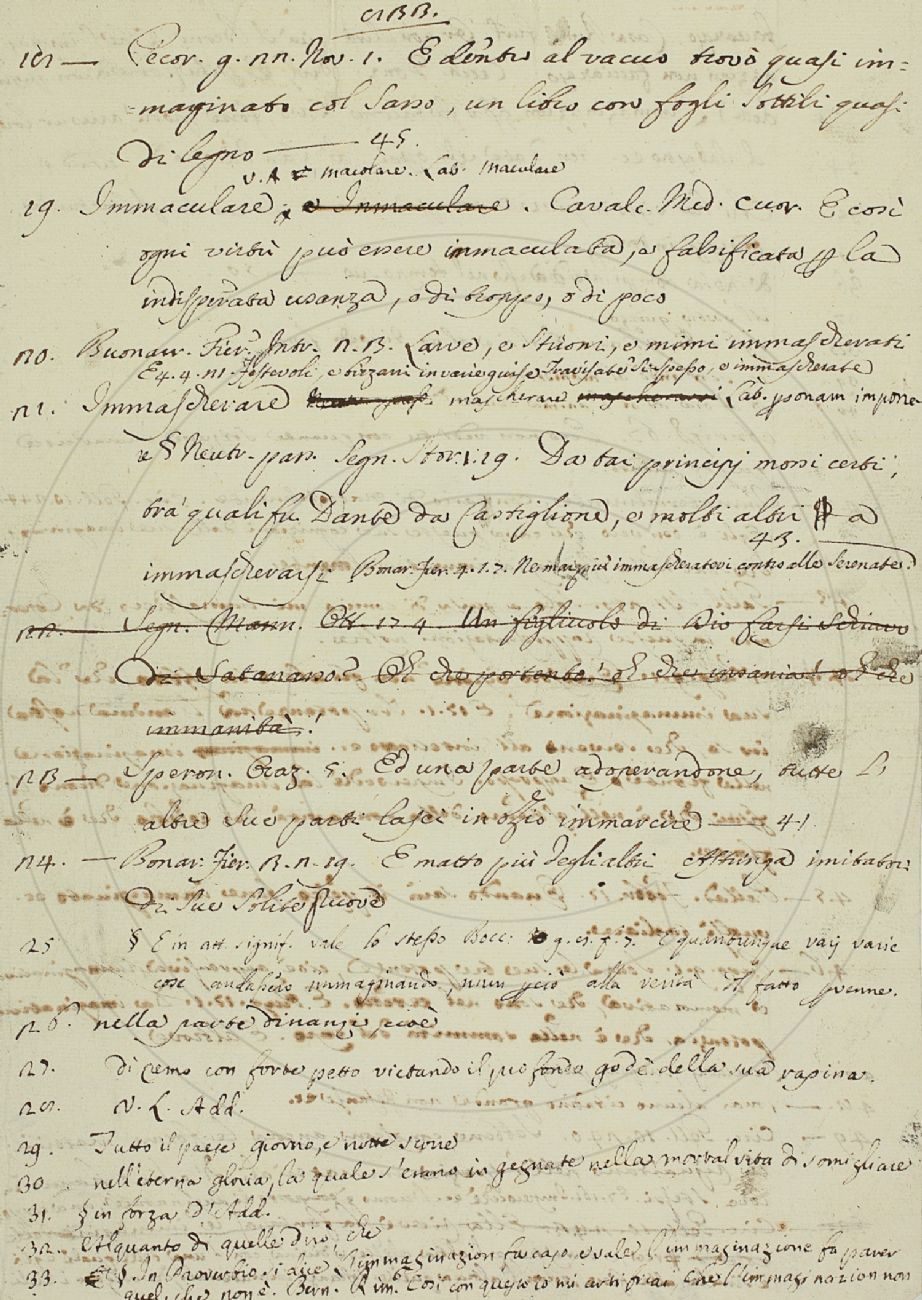 18 — Pecor. g. 22. Nov. 1. E dentro al vacuo trovò quasi im=
=maginato col sasso, un libro con fogli sottili quasi
di legno — 45.
V. A = macolare. Lat. maculare
19. Immaculare, e Inmaculare. Cavalc. Med. cuor. E così
ogni virtù può essere immaculata, e falsificata p la
indisperata usanza, o di troppo, o di poco
20. Buonar. Fier. Intr. 2. 3. Larve, e Strioni, e mimi immascherati
E 4. 4. 21. Festevoli, e bizzarri in varie guise Travisate si spesso, e immascherate
21. Immascherare mascherare mascherarsi Lat. psonam imponere
e § Neutr. pass. Segn. Stor. 1. 19. Da tai principj mossi certi,
tra' quali fu Dante da Castiglione, e molti altri a
43.
immascherarsi Bonar. Fier. 4. 1. 7. Ne mai più immascheratevi contro alle Serenate
22. Segn. Mann. Ott. 17. 4 Un figliuolo di Dio farsi schiavo
di Satanasso? Oh che portento! oh che insania! oh che
immanità!
23 — Speron. Oraz. 5. Ed una parte adoperandone, tutte l'
altre sue parti lasci in ozio immarcire — 41
24. — Bonar. Fier. 3. 2. 19. E matto più degli altri attinga imitator
di sue solite
25 § E in att. signif. vale lo stesso Bocc: g. 8. f. 7. E quantunque varj varie
cose andassero immaginando, niun pciò alla verità il fatto pvenne.
26. nella parte dinanzi, cioè
27. di remo con forte petto vietando il profondo gode della sua rapina.
28. V. L. Add.
29. Tutto il paese giorno, e notte scorre
30 nell'eterna gloria, la quale s'erano ingegnate nella mortal vita di somigliare
31. § in forza d'Add.
32. Alquanto di quelle dirò, che
33. § In Proverbio si dice L'immaginazion fa caso, e vale l'immaginazione fa parer
quel, che non è. Bern. Rim. Così con questo io mi Che l'immaginazion non